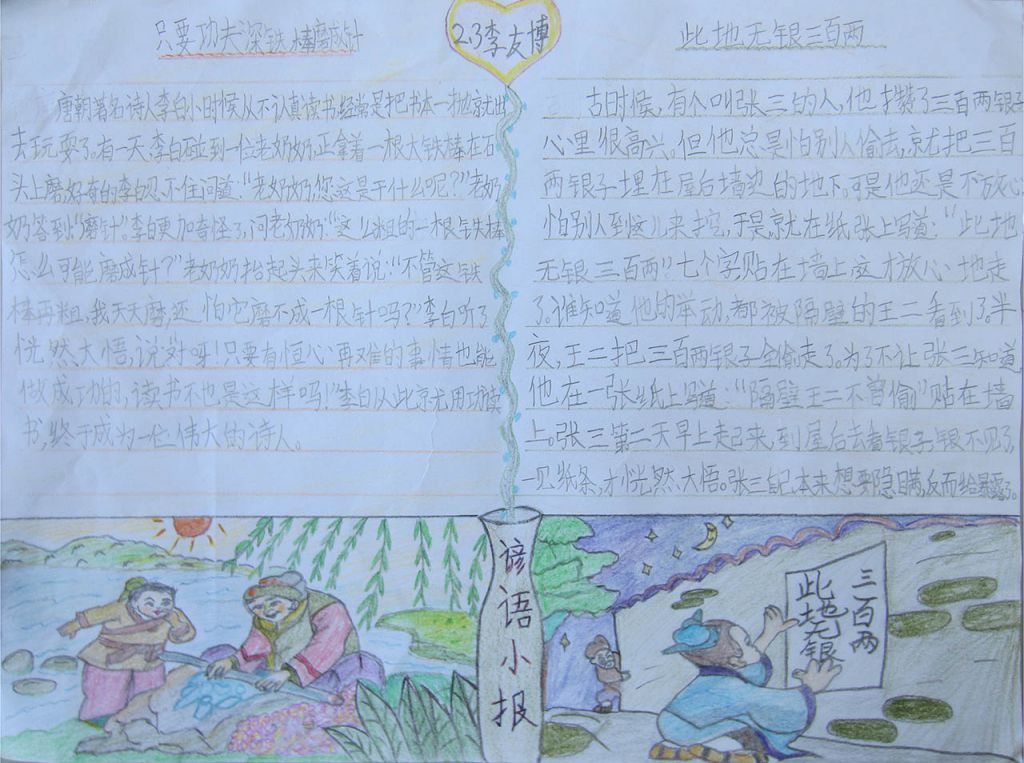 只要功夫深铁棒磨成针
唐朝著名诗人李白小时候从不认真读书经常是把书本一抛就出
去玩耍了。有一天李白碰到一位老奶奶正拿着一根大铁棒在石
头上磨好奇的李白忍不住问道:“老奶奶您这是干什么呢?”老奶
奶答到“磨针”。李白更加奇怪了,问老奶奶:“这么粗的一根铁棒
怎么可能磨成针?”老奶奶抬起头来笑着说:“不管这铁
棒再粗,我天天磨,还怕它磨不成一根针吗?”李白听了
恍然大悟,说“对呀!只要有恒心再难的事情也能
做成功的,读书不也是这样吗!”李白从此京尤用功读
书,终于成为一位伟大的诗人。
23李友博
此地无银三百两
古时候,有个叫张三的人,他攒了三百两银子
心里很高兴。但他总是怕别人偷去,就把三百
两银子埋在屋后墙边的地下。可是他还是不放心
怕别人到这儿来挖,于是就在纸张上写道:“此地
无银三百两”七个字贴在墙上这才放心地走
了。谁知道他的举动,都被隔壁的王二看到了。半
夜,王二把三百两银子全偷走了。为了不让张三知道
他在一张纸上写道:“隔壁王二不曾偷”贴在墙
上。张三第二天早上起来,到屋后去看银子,银不见了,
一见纸条,才恍然大悟。张三自己本来想要隐瞒,反而给暴露了。
谚语小报
此地无银
三百两